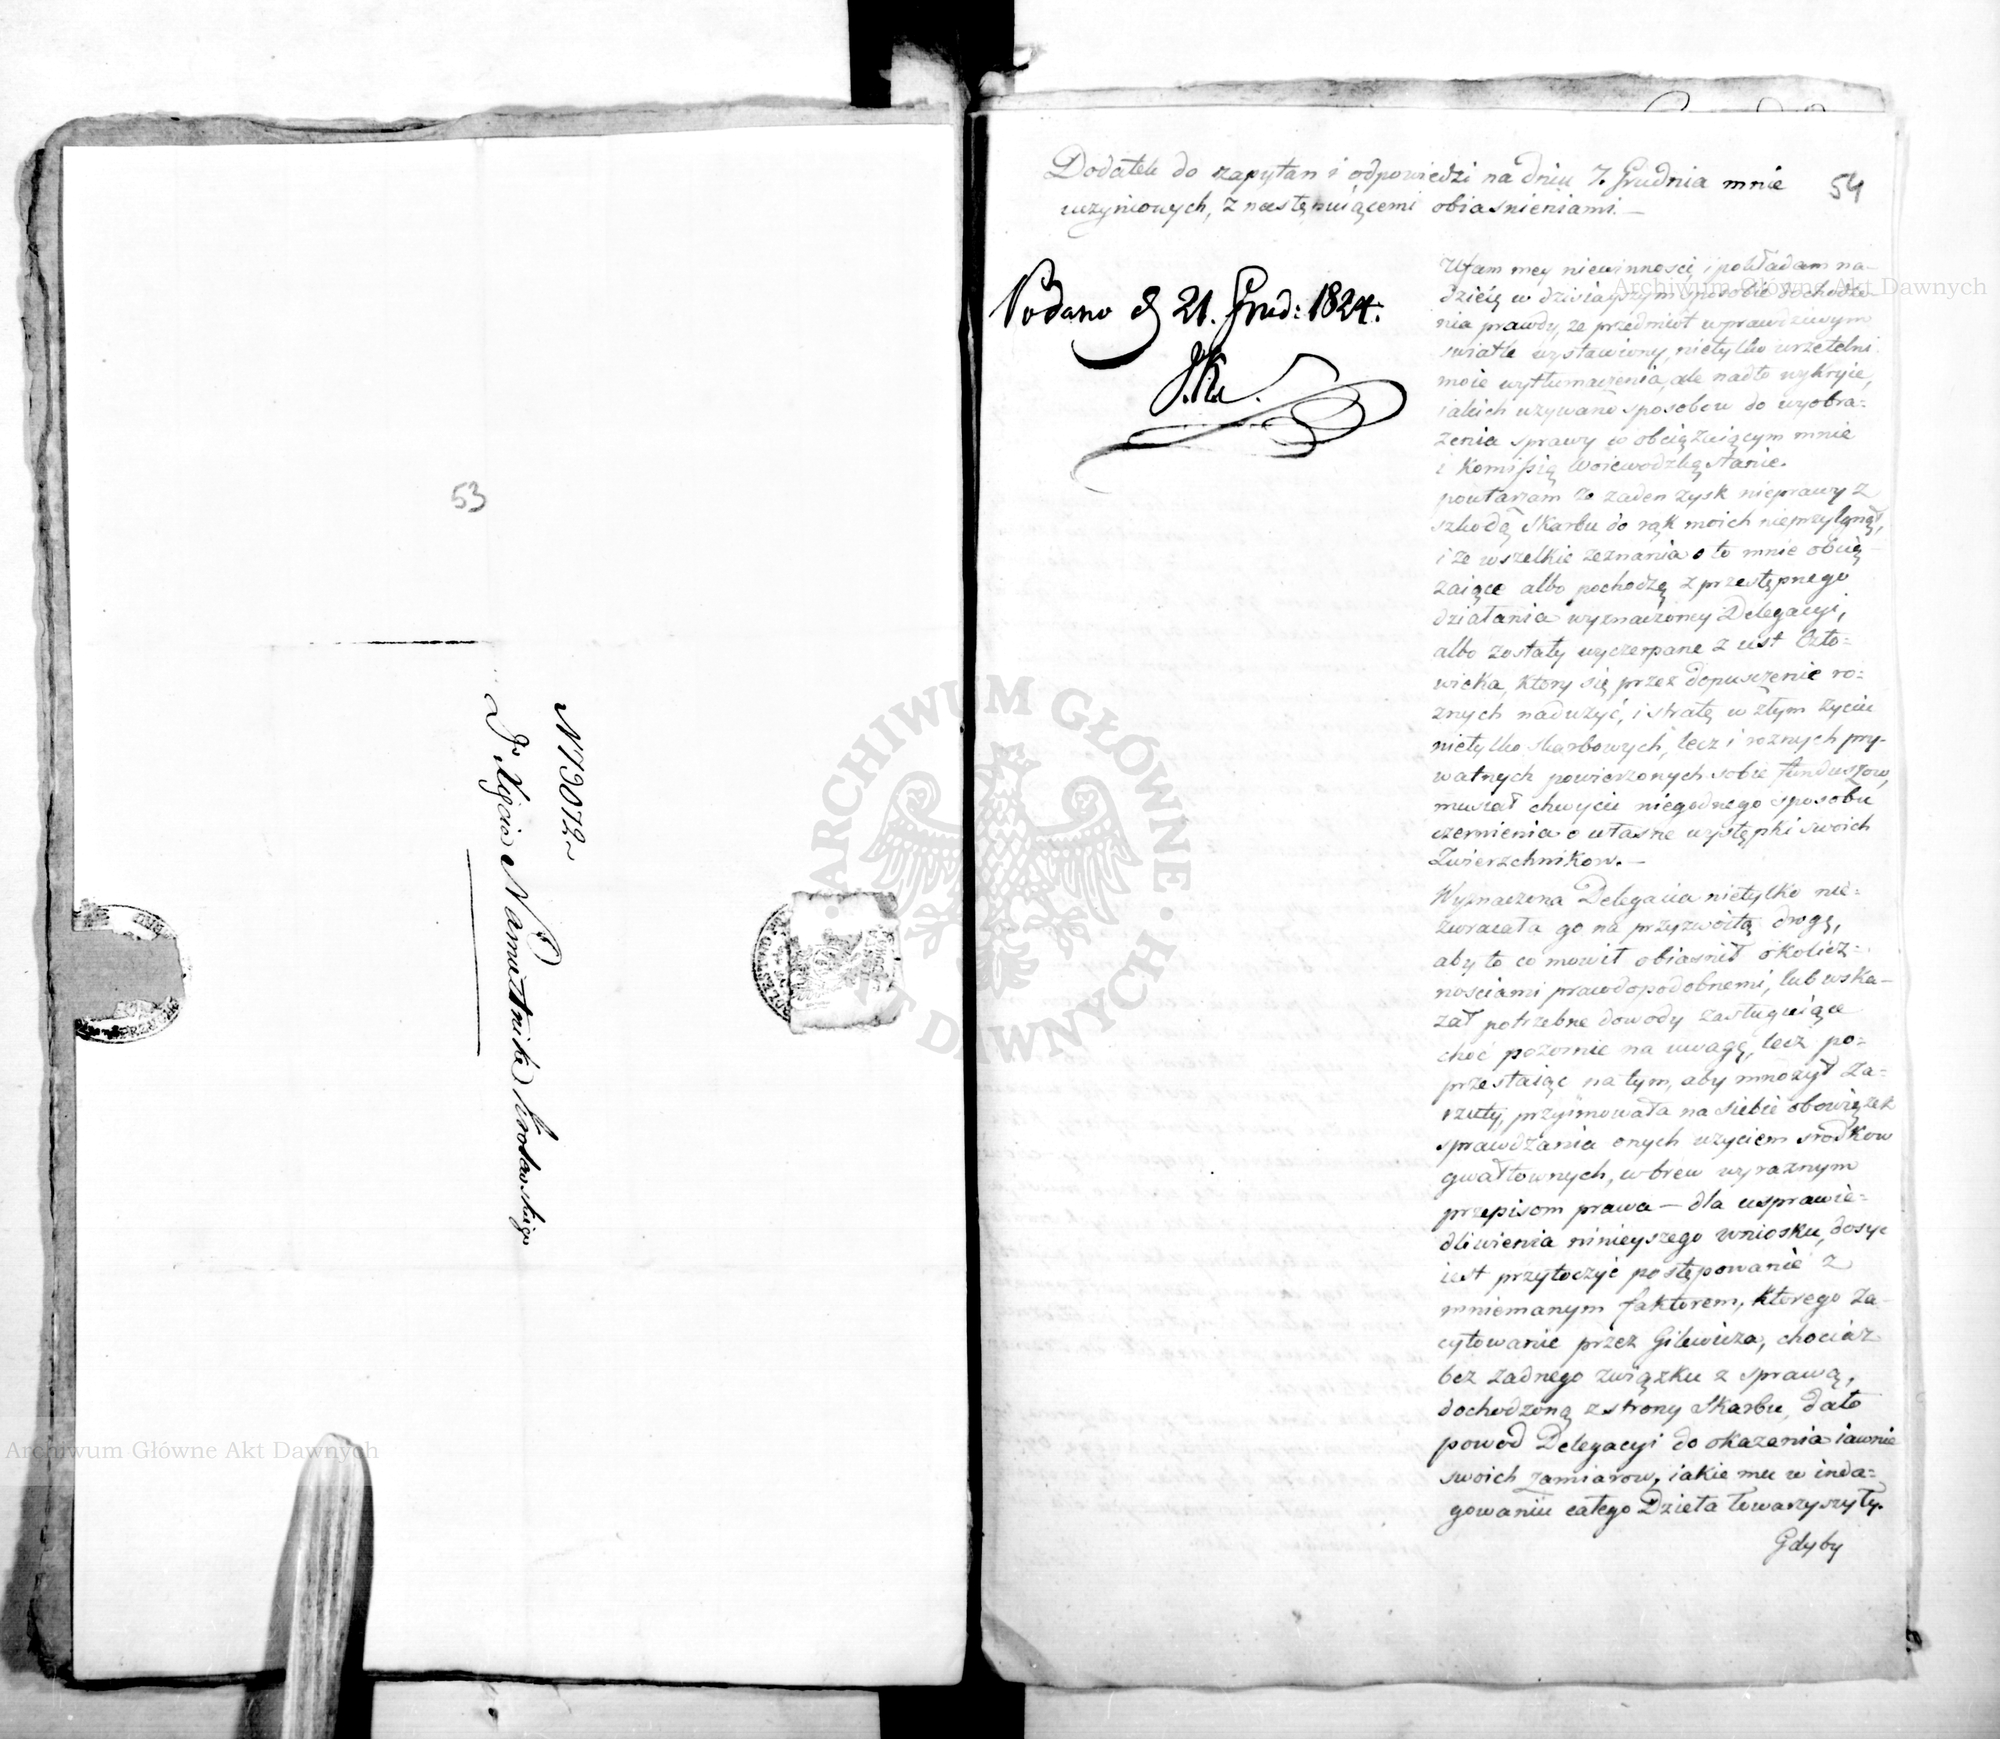 53
N 73072
Namiestnika
54
Dodatek do zapytan i odpowiedzi na dniu 7. Grudnia mnie
uczynionych, z następuiącemi obiasnieniami. —
Podano d 21. Grud: 1824.
Ufam mey niewinności, i pokładam na-
dzieię w dzisiayszym sposobie dochodze-
nia prawdy, ze przedmiot w prawdziwym
swiatle wystawiony, nietylko
moie wytłumaczenia, ale nadto wykryie,
iakich uzywano sposobow do wyobra=
zenia sprawy w obciązaiącym mnie
i Kommissią Woiewodzką stanie.
powtarzam ze zaden zysk nieprawy z
szkodą Skarbu do rąk moich nieprzylgnął,
i ze wszelkie zeznania o to mnie obcią
zaiące albo pochodzą z przestępnego
działania wyznaczoney Delegacyi,
albo zostały wyczerpane z ust Czło=
wieka, ktory się przez dopuszczenie ro=
znych naduzyć, i stratę w złym zyciu
nietylko skarbowych, lecz i roznych pry-
watnych powierzonych sobie funduszow,
musiał chwycić niegodnego sposobu
czernienia o własne występki swoich
Zwierzchnikow. —
Wyznaczona Delegacia nietylko nie=
zwracała go na przyzwoitą drogę,
aby to co mowił obiasnił okolicz=
nościami prawdopodobnemi, lub wska-
zał potrzebne dowody zasługuiące
choć pozornie na uwagę, lecz po=
przestaiąc na tym, aby mnozył Za=
rzuty, przyimowała na siebie obowiązek
sprawdzania onych uzyciem srodkow
gwałtownych, wbrew wyraznym
przepisom prawa — dla usprawie=
dliwienia ninieyszego wniosku, dosyc
iest przytoczyć postępowanie z
mniemanym faktorem, ktorego za
cytowanie przez Gilewicza, chociaz
bez zadnego związku z sprawą,
dochodzoną z strony Skarbu, dało
powod Delegacyi do okazania iawnie
swoich zamiarow, iakie mu w inda=
gowaniu całego Dzieła towarzyszyły.
Gdyby
ARCHIWUM GŁÓWNE AKT DAWNYCH
Archiwum Główne Akt Dawnych
Archiwum Główne Akt Dawnych